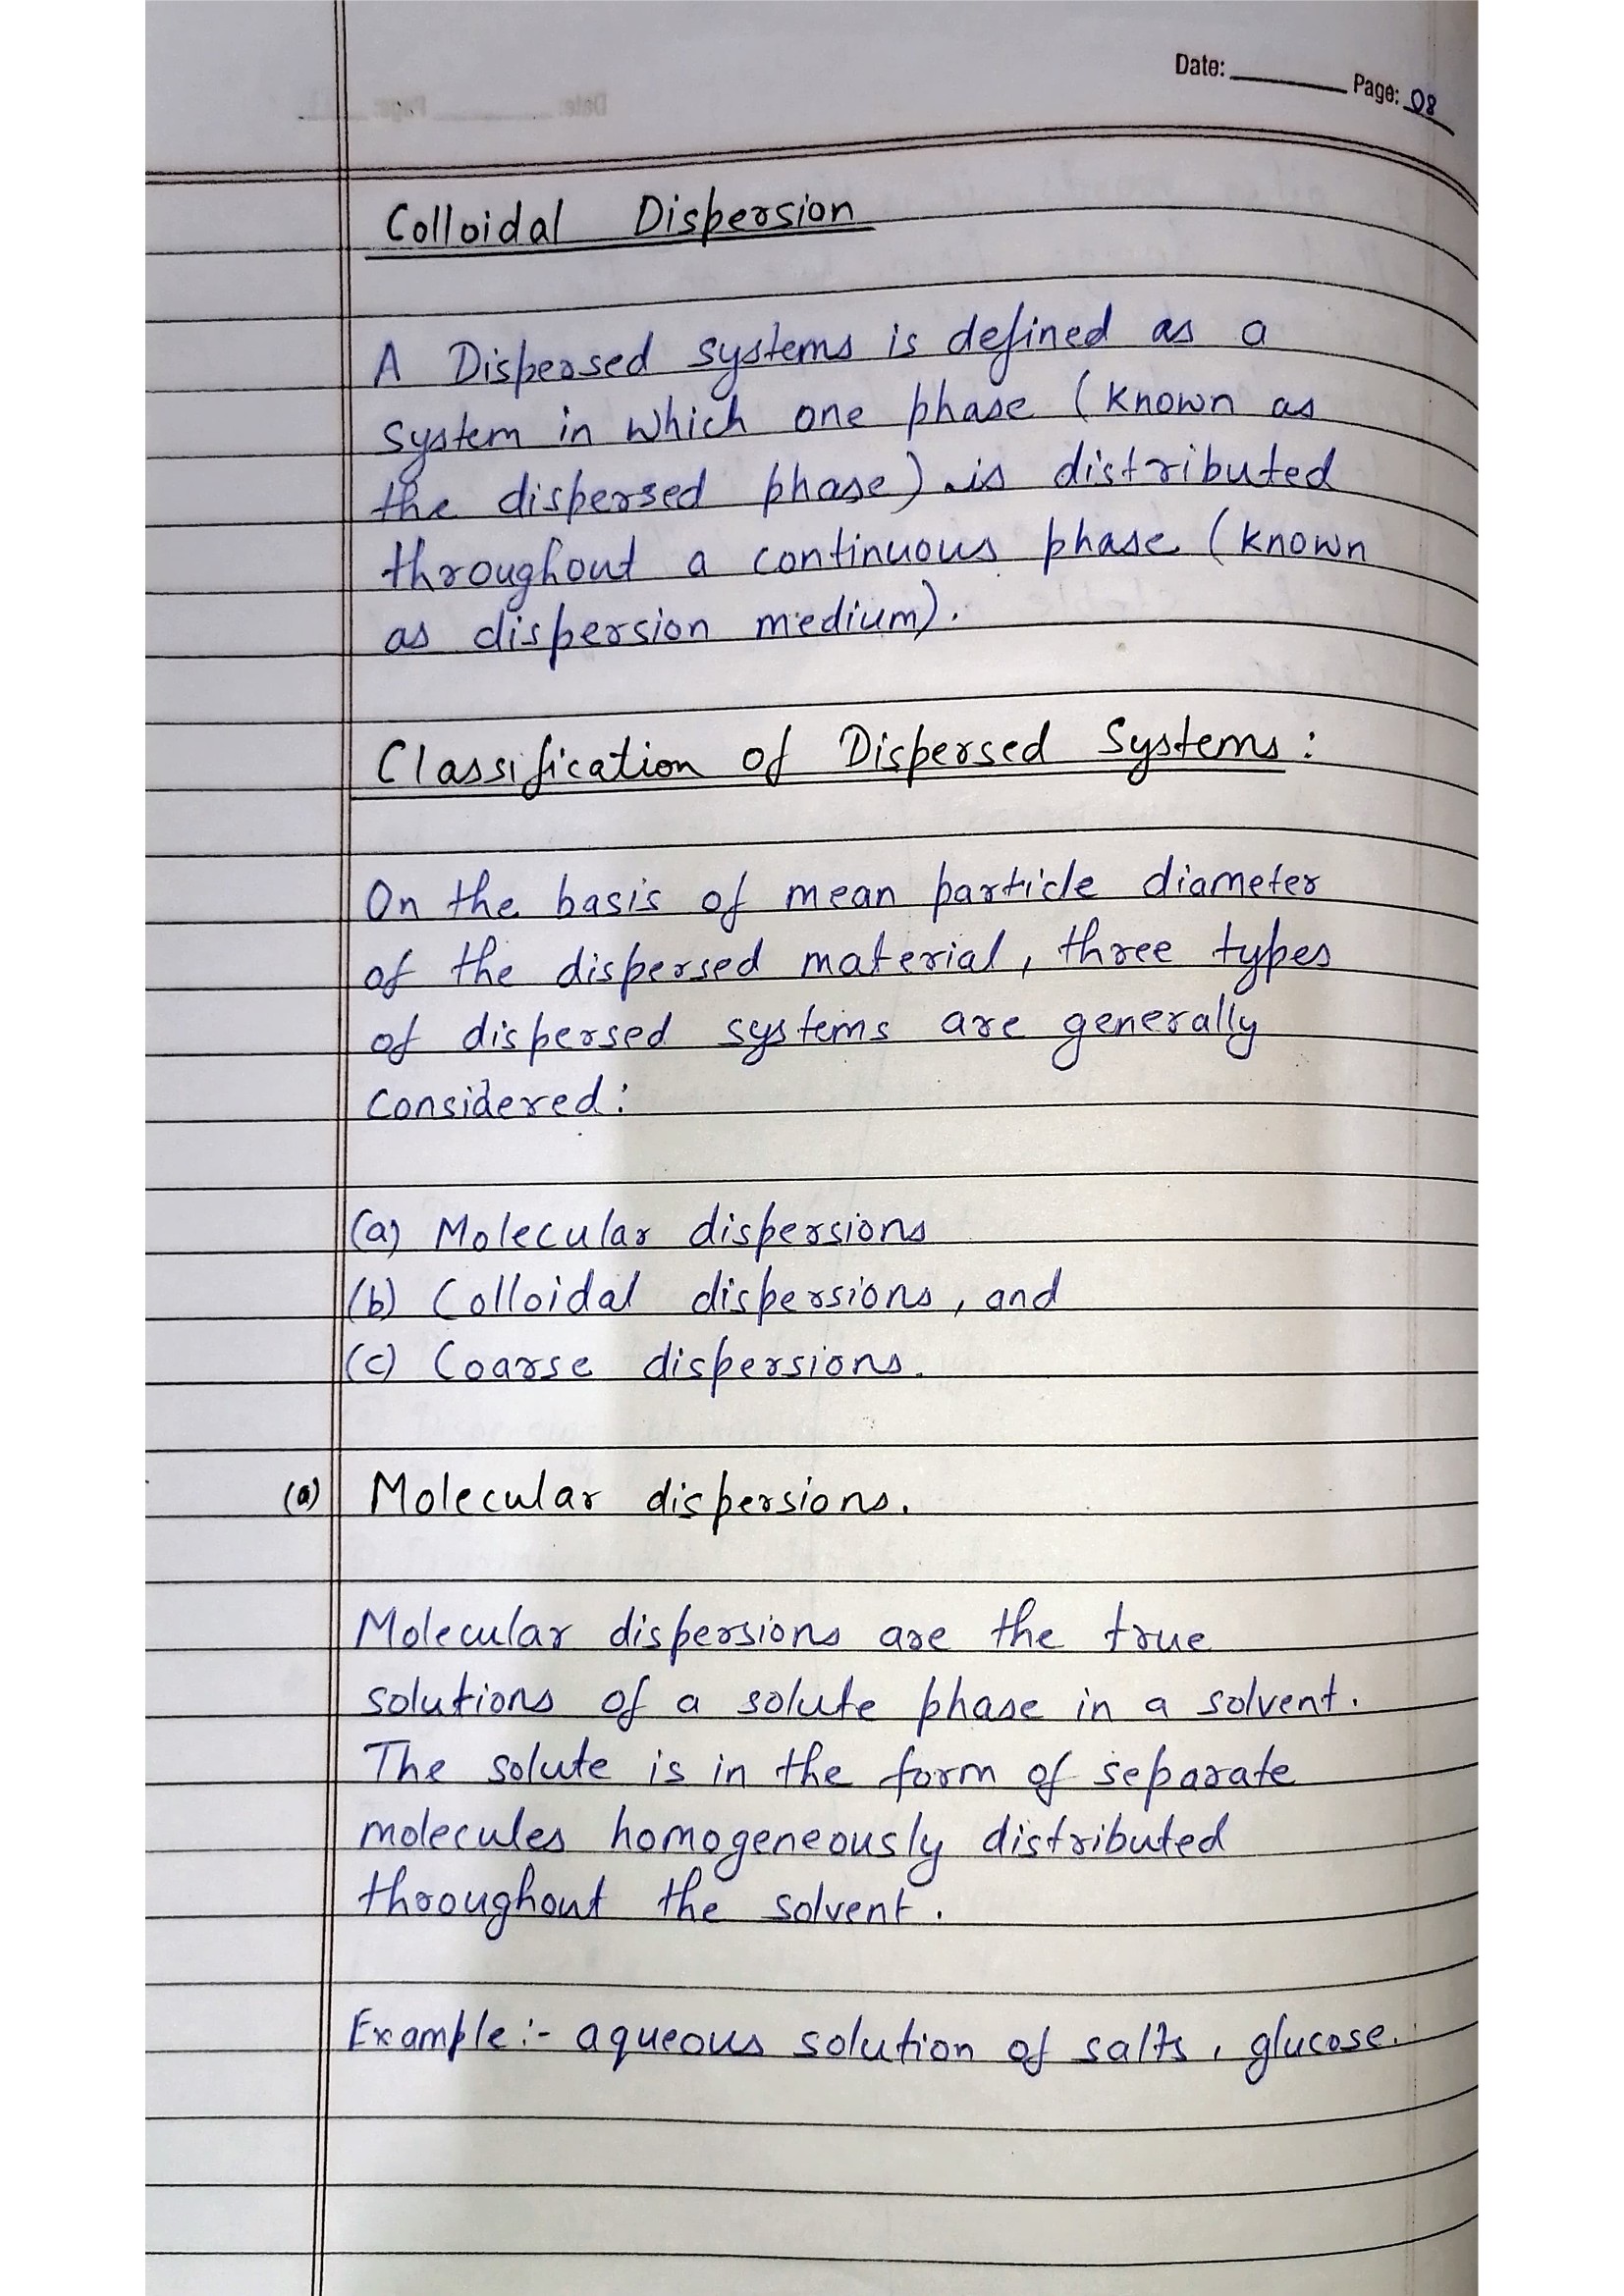 Date: Page: 08
Colloidal Dispersion
A Dispersed systems is defined as a
system in which one phase (known as
the dispersed phase) is distributed
throughout a continuous phase (known
as dispersion medium).
Classification of Dispersed Systems:
On the basis of mean particle diameter
of the dispersed material, three types
of dispersed systems are generally
considered:
(a) Molecular dispersions
(b) Colloidal dispersions, and
(c) Coarse dispersions.
(a) Molecular dispersions.
Molecular dispersions are the true
solutions of a solute phase in a solvent.
The solute is in the form of separate
molecules homogeneously distributed
throughout the solvent.
Example:- aqueous solution of salts, glucose.